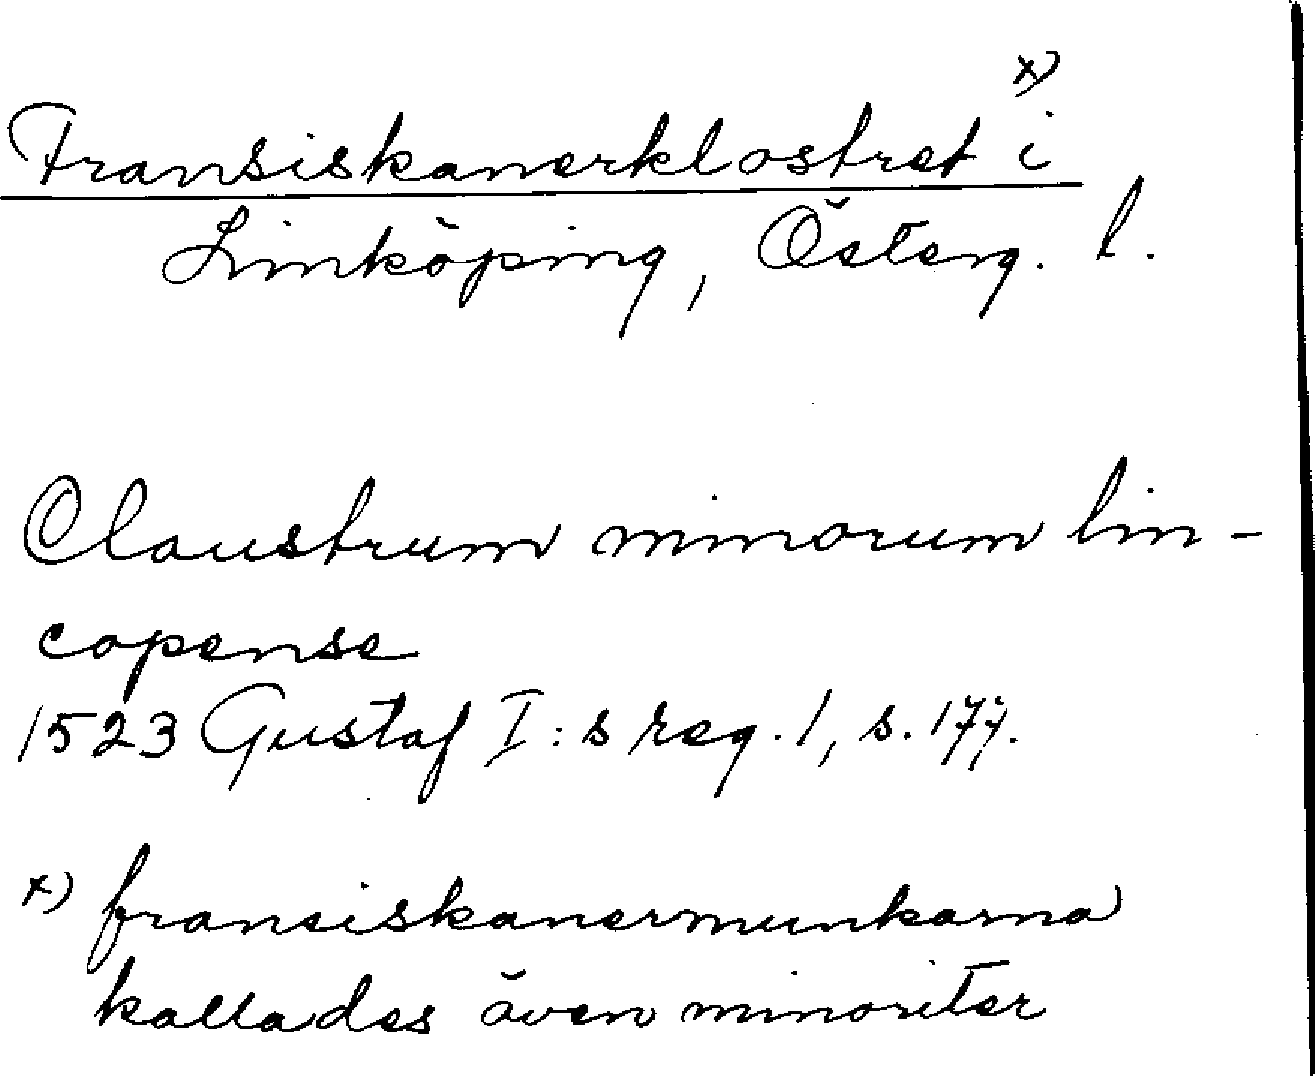 Fransiskanerklostret x) i
Linköping, Österg. l.
Claustrum minorum lin-
copense
1523 Gustaf I:s reg. 1, s. 177.
x) franciskanermunkarna
kallades även minoriter